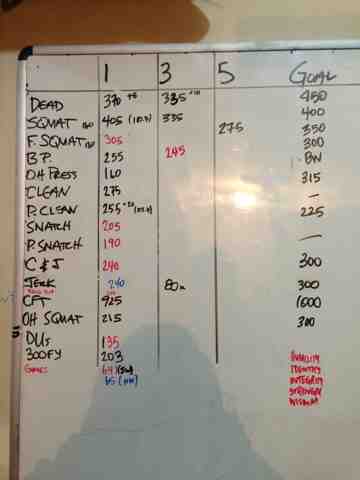 1 3 5 GOAL
DEAD 370 +5 335 +10 450
SQUAT 405 335 400
F. SQUAT 305 275 350
B.P. 255 245 300
OH PRESS 160 BW
CLEAN 275 315
P. CLEAN 255 —
SNATCH 205 225
P. SNATCH 190 —
C & J 240 300
JERK 240 80% 300
CFT 925 1000
OH SQUAT 215 300
DUs 135
300FY 203
GAMES
HUMILITY
IDENTITY
INTEGRITY
STRENGTH
WISDOM